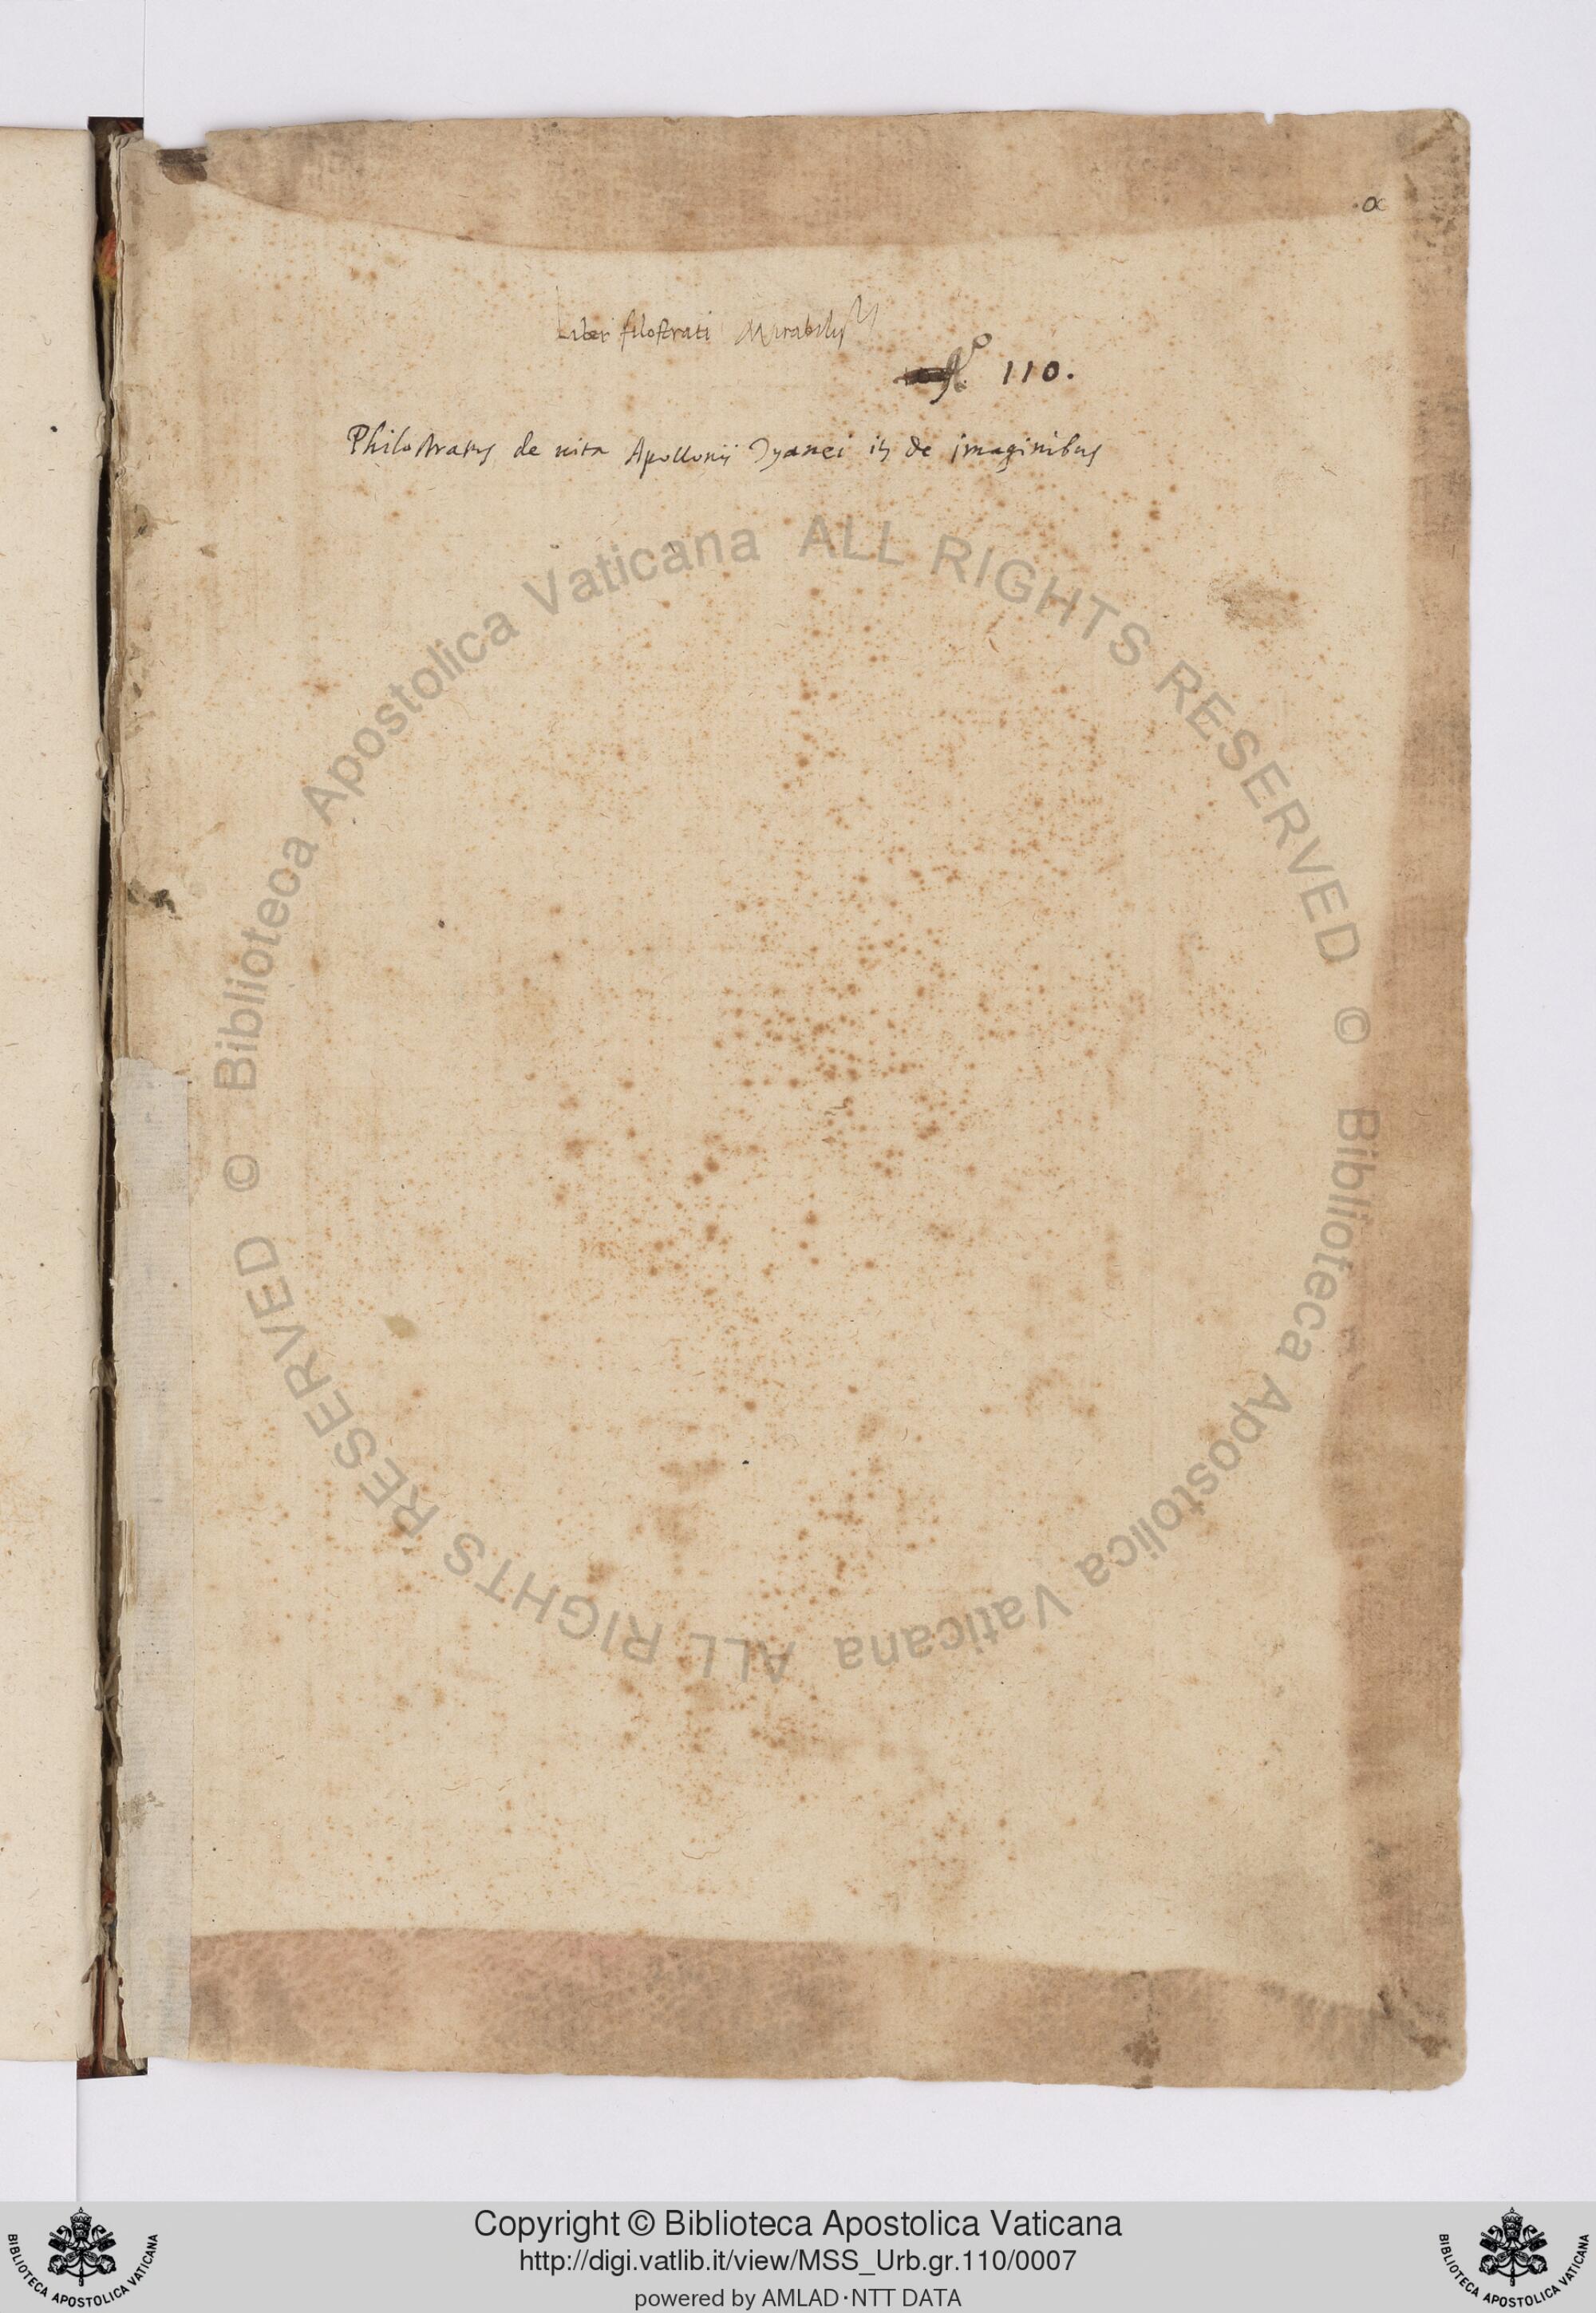 α
Liber filostrati Mirabilis
N° 110.
Philostratus de uita Apollonij Tyanei it de imaginibus
© Biblioteca Apostolica Vaticana ALL RIGHTS RESERVED
© Biblioteca Apostolica Vaticana ALL RIGHTS RESERVED
Copyright © Biblioteca Apostolica Vaticana
http://digi.vatlib.it/view/MSS_Urb.gr.110/0007
powered by AMLAD·NTT DATA
BIBLIOTECA APOSTOLICA VATICANA
BIBLIOTECA APOSTOLICA VATICANA